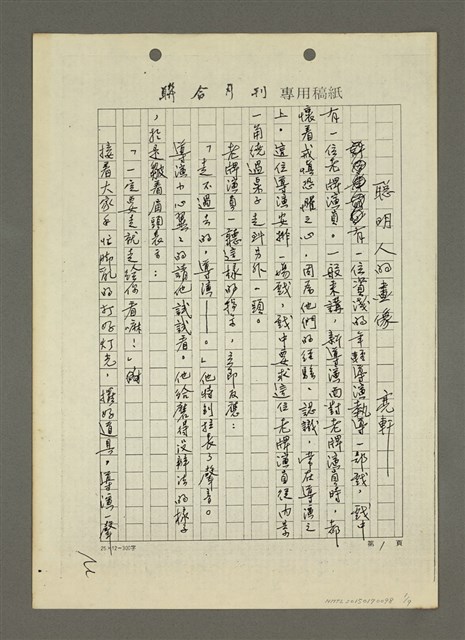 聯合月刊 專用稿紙
聰明人的畫像　亮軒——
有一位資淺的年輕導演執導一部戲，戲中
有一位老牌演員。一般來講，新導演面對老牌演員時，都
懷着戒慎恐懼之心，因為他們的經驗、認識，常在導演之
上。這位導演安排一場戲，戲中要求這位老牌演員從內景
一角繞過桌子走到另外一頭。
老牌演員一聽這樣的指示，立即反應：
「走不過去的，導演——。」他特別拉長了聲音。
導演小心翼翼的請他試試看。他給磨得沒辦法的樣子
，於是皺着眉頭表示：
「一定要走就走給你看嘛！」
接着大家手忙腳亂的打好灯光，擺好道具，導演一聲
第1頁
25×12=300字
NMTL20150190098
1/9